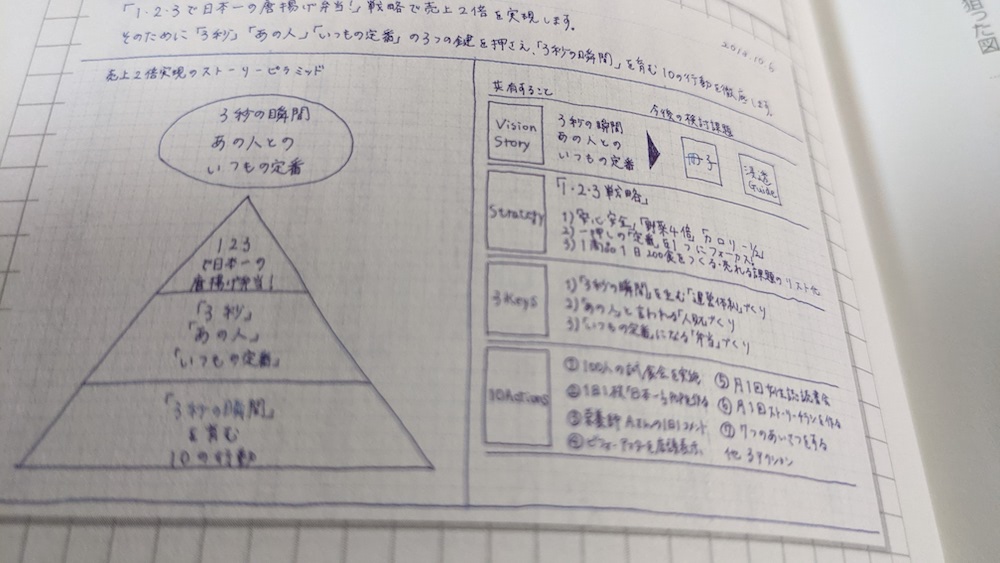 「1・2・3で日本一の唐揚げ弁当!」戦略で売上2倍を実現します。
そのために「3秒」「あの人」「いつもの定番」の3つの鍵を押さえ、「3秒の瞬間」を育む10の行動を徹底します。
2014.10.6
売上2倍実現のストーリーピラミッド
3秒の瞬間
あの人との
いつもの定番
123
で日本一の
唐揚げ弁当!
「3秒」
「あの人」
「いつもの定番」
「3秒の瞬間」
を育む
10の行動
共有すること
今後の検討課題
Vision
Story
3秒の瞬間
あの人との
いつもの定番
冊子
浸透
Guide
Strategy
「1・2・3戦略」
1)「安心安全」「野菜4倍」「カロリー1/2」
2) 一押しの「定番」を1つにフォーカス
3) 1商品1日200食をつくる・売れる課題のリスト化
3Keys
1)「3秒の瞬間」を生む「運営体制」づくり
2)「あの人」と言われる「人財」づくり
3)「いつもの定番」になる「弁当」づくり
10Actions
① 100人の試食会を実施
② 1日1枚「日本一」
③ 栄養師Aさんの1日1コメント
④ ビフォーアフターを店頭表示
⑤ 月1回
⑥ 月1回ストーリーチラシを作る
⑦ 7つのあいさつをする
他3アクション
狙った図